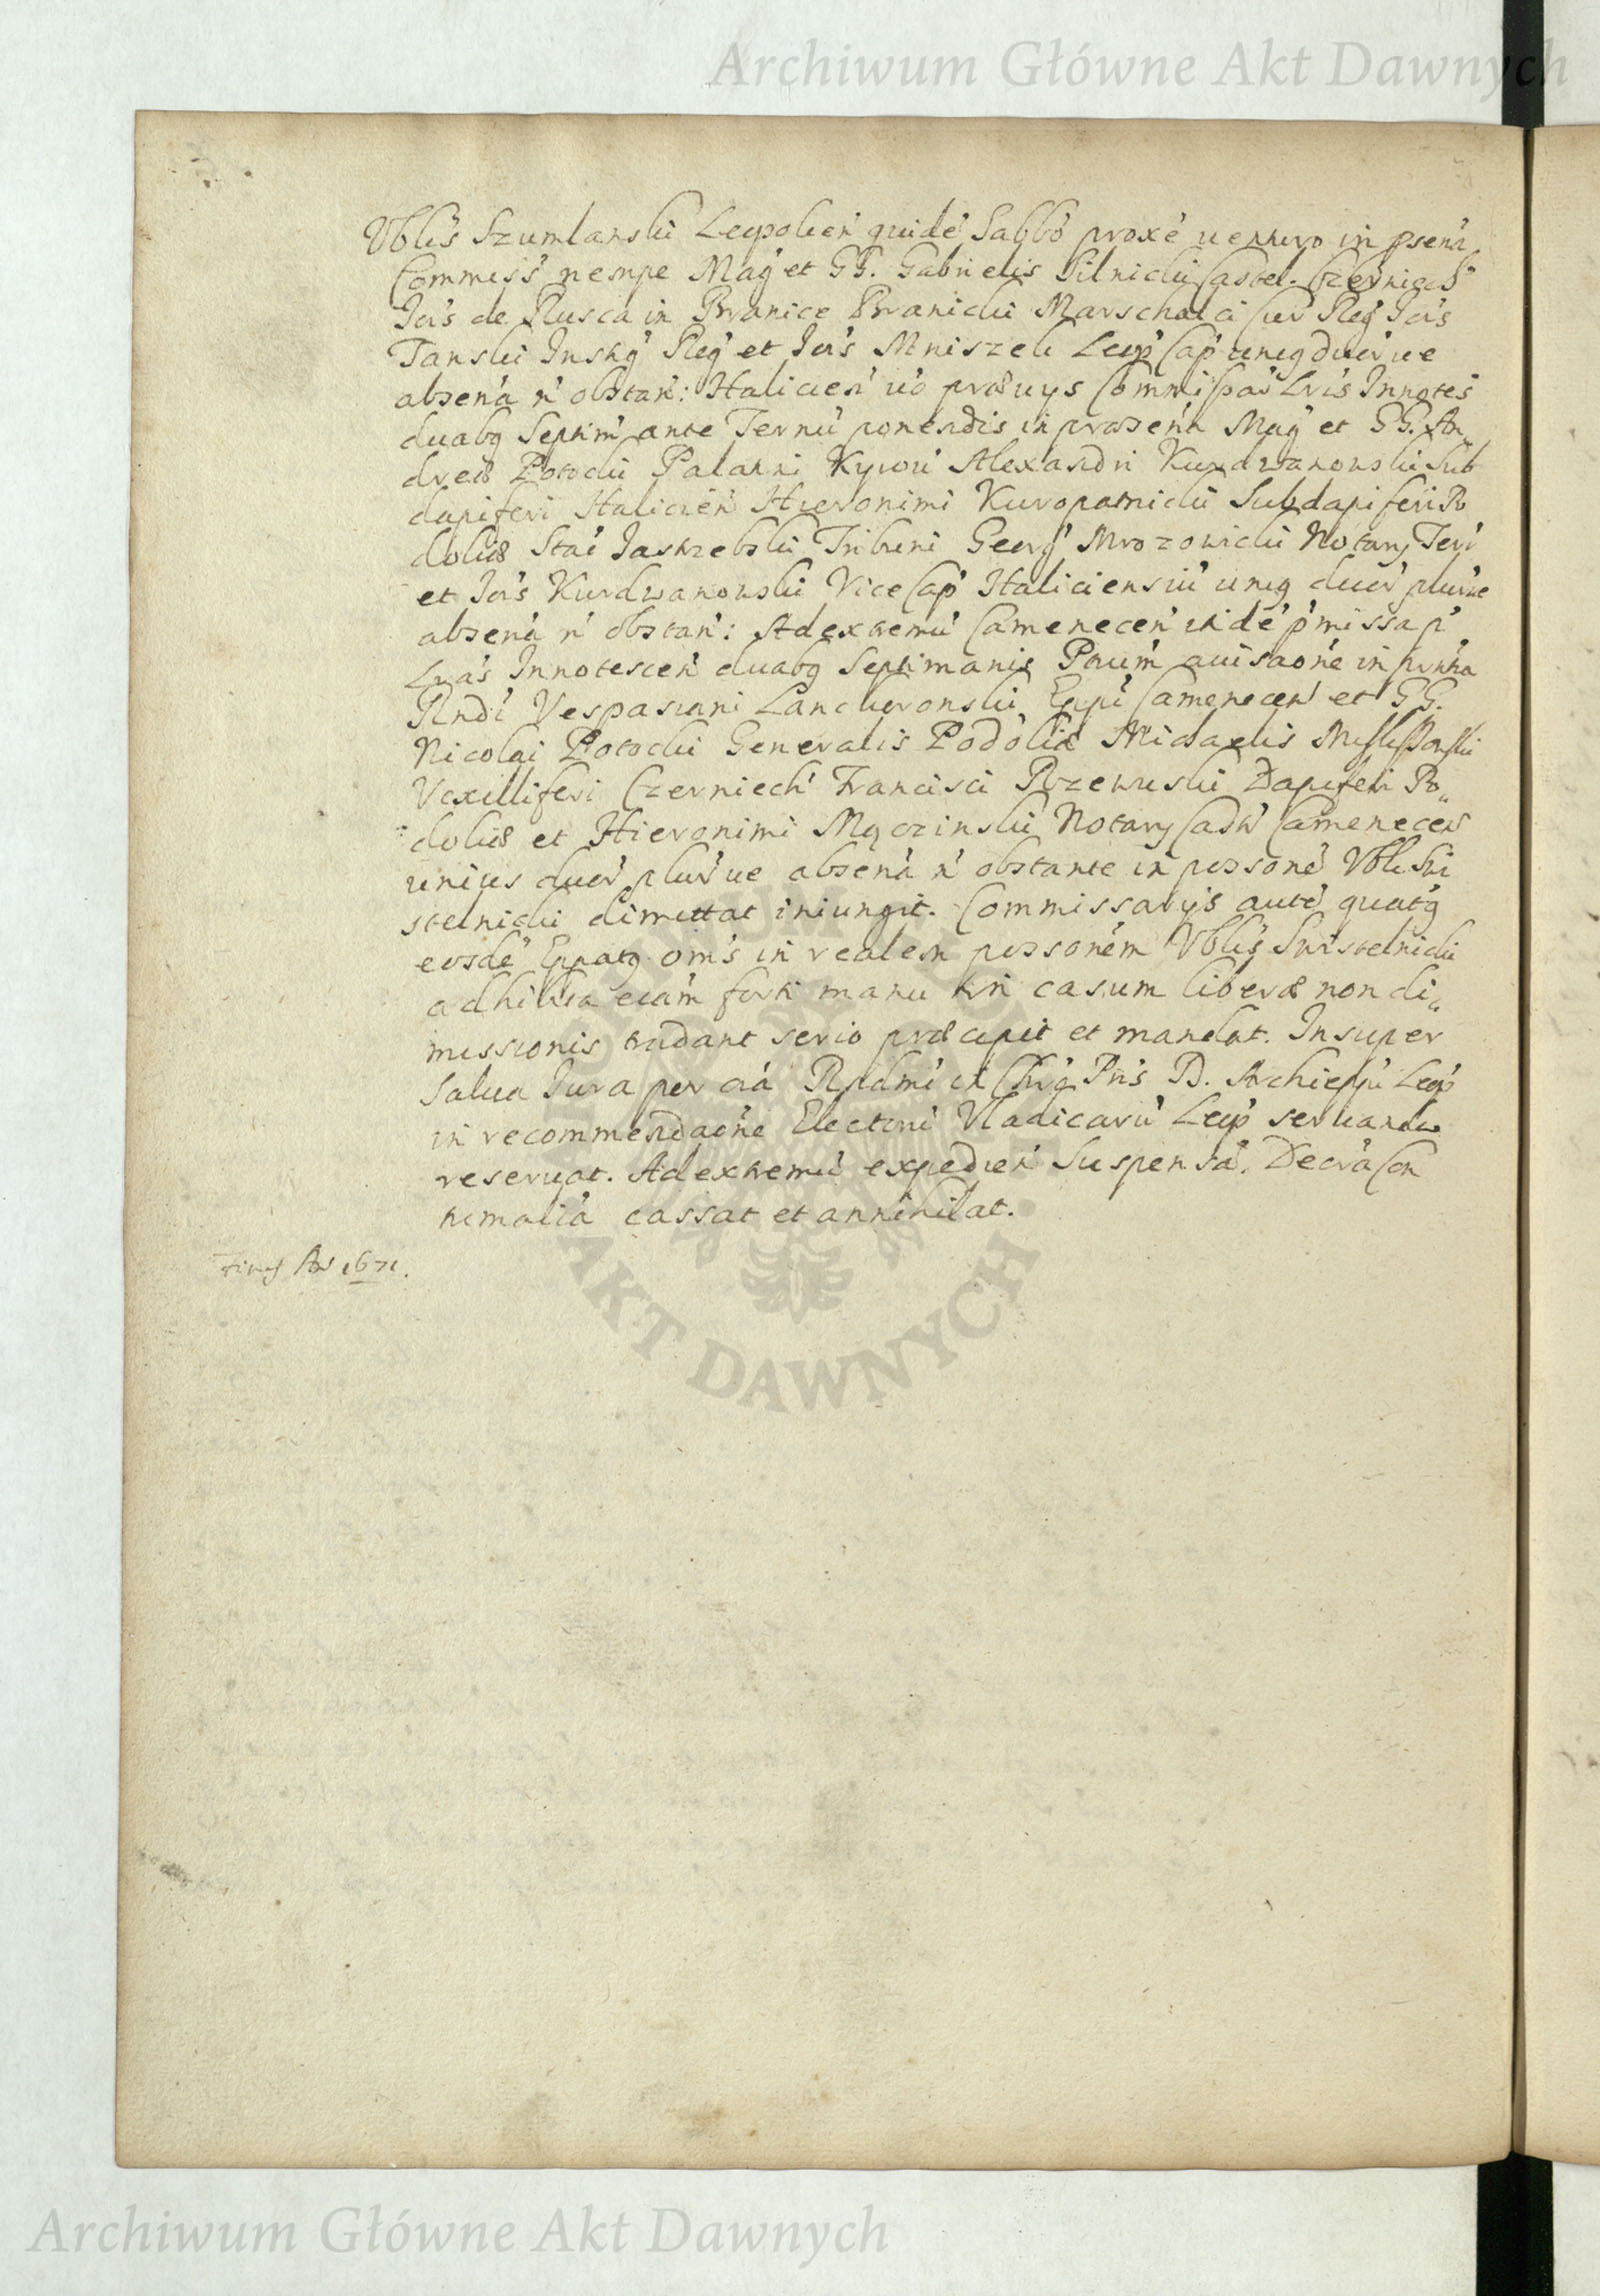 Archiwum Główne Akt Dawnych
Vblis Szumlanskii Leopolien quidé Sabbó proxé venturo in psená
Commiss nempe Mag et GG. Gabrielis Silnicki Castel. Czerniech
Jois de Rusca in Branice Branicki Marschalci Cur Reg Jois
Tanski Reg et Jois Mniszek Leop Cap duor ve
absená ń obstań: Halicień vó prævys Commissar Lris Innotes
duabq Septim ante Ternú ponendis in præsená Mag et GG. An
dreæ Potocki Palatini Kyiov Alexandri Kurdwanowski Sub
dapiferi Halicień Hieronimi Kuropatnicki Subdapiferi Po
doliæ Stai Jaskrzebski Tribuni Georg Mrozowicki Notary Terr
et Jois Kurdwanowski Vice Cap Haliciensiú duor plur ve
absená ń obstań: Ad extremú Camenecen itidé pmiss
Lras Innotescen duabq Septimanis avisaoné in
Rndi Vespasiani Lanckoronski Eppi Camenecen et GG.
Nicolai Potocki Generalis Podoliæ Michaelis
Vexilliferi Czerniech Francisci Rzewuski Dapiferi Po„
doliæ et Hieronimi Mączinski Notary Castr Camenecen
unius duor plur ve absená ń obstante in possoné Vbli Swi
stelnicki dimittat iniungit. Commissarys auté quatq
eosdé Eppatq oms in realem possoném Vblis Swistelnicki
adhibita etiám forti manu in casum liberæ non di„
missionis tradant serio præcipit et mandat. Insuper
salua Jura per Rndmi in Chrō Pris D. Archieppi Leop
in recommendaoné Electoni Vladicarú Leop servanda
reservat. Ad extremú expedień Suspensá. Decrá Con
tumaciá cassat et annihilat.
Ao 1671.
AKT DAWNYCH
Archiwum Główne Akt Dawnych